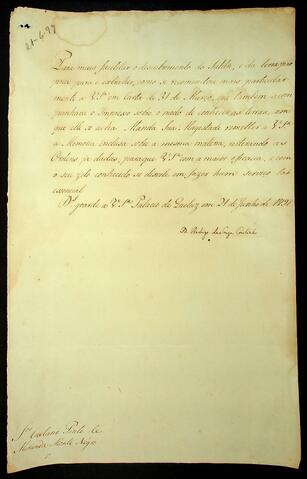 21-6-97
Para mais facilitar o descubrimento do Salitre, e da terra pro
pria para o extrahir, como se recomendou mais particular
mente a V. S.ª em Carta de 31 de Março, que tambem acom
panhava o Impresso sobre o modo de conhecer as terras, em
que elle se acha: Manda Sua Magestade remetter a V. S.ª
a Memoria incluza sobre a mesma materia, reiterando as
Ordens já dadas, para que V. S.ª com a maior efficacia, e com
o seu zelo conhecido se disvele em fazer hum serviço tão
essencial.
D.s guarde a V. S.ª Palacio de Queluz em 21 de Junho de 1797
D. Rodrigo de Souza Coutinho
S.r Caetano Pinto de
Miranda Monte Negro